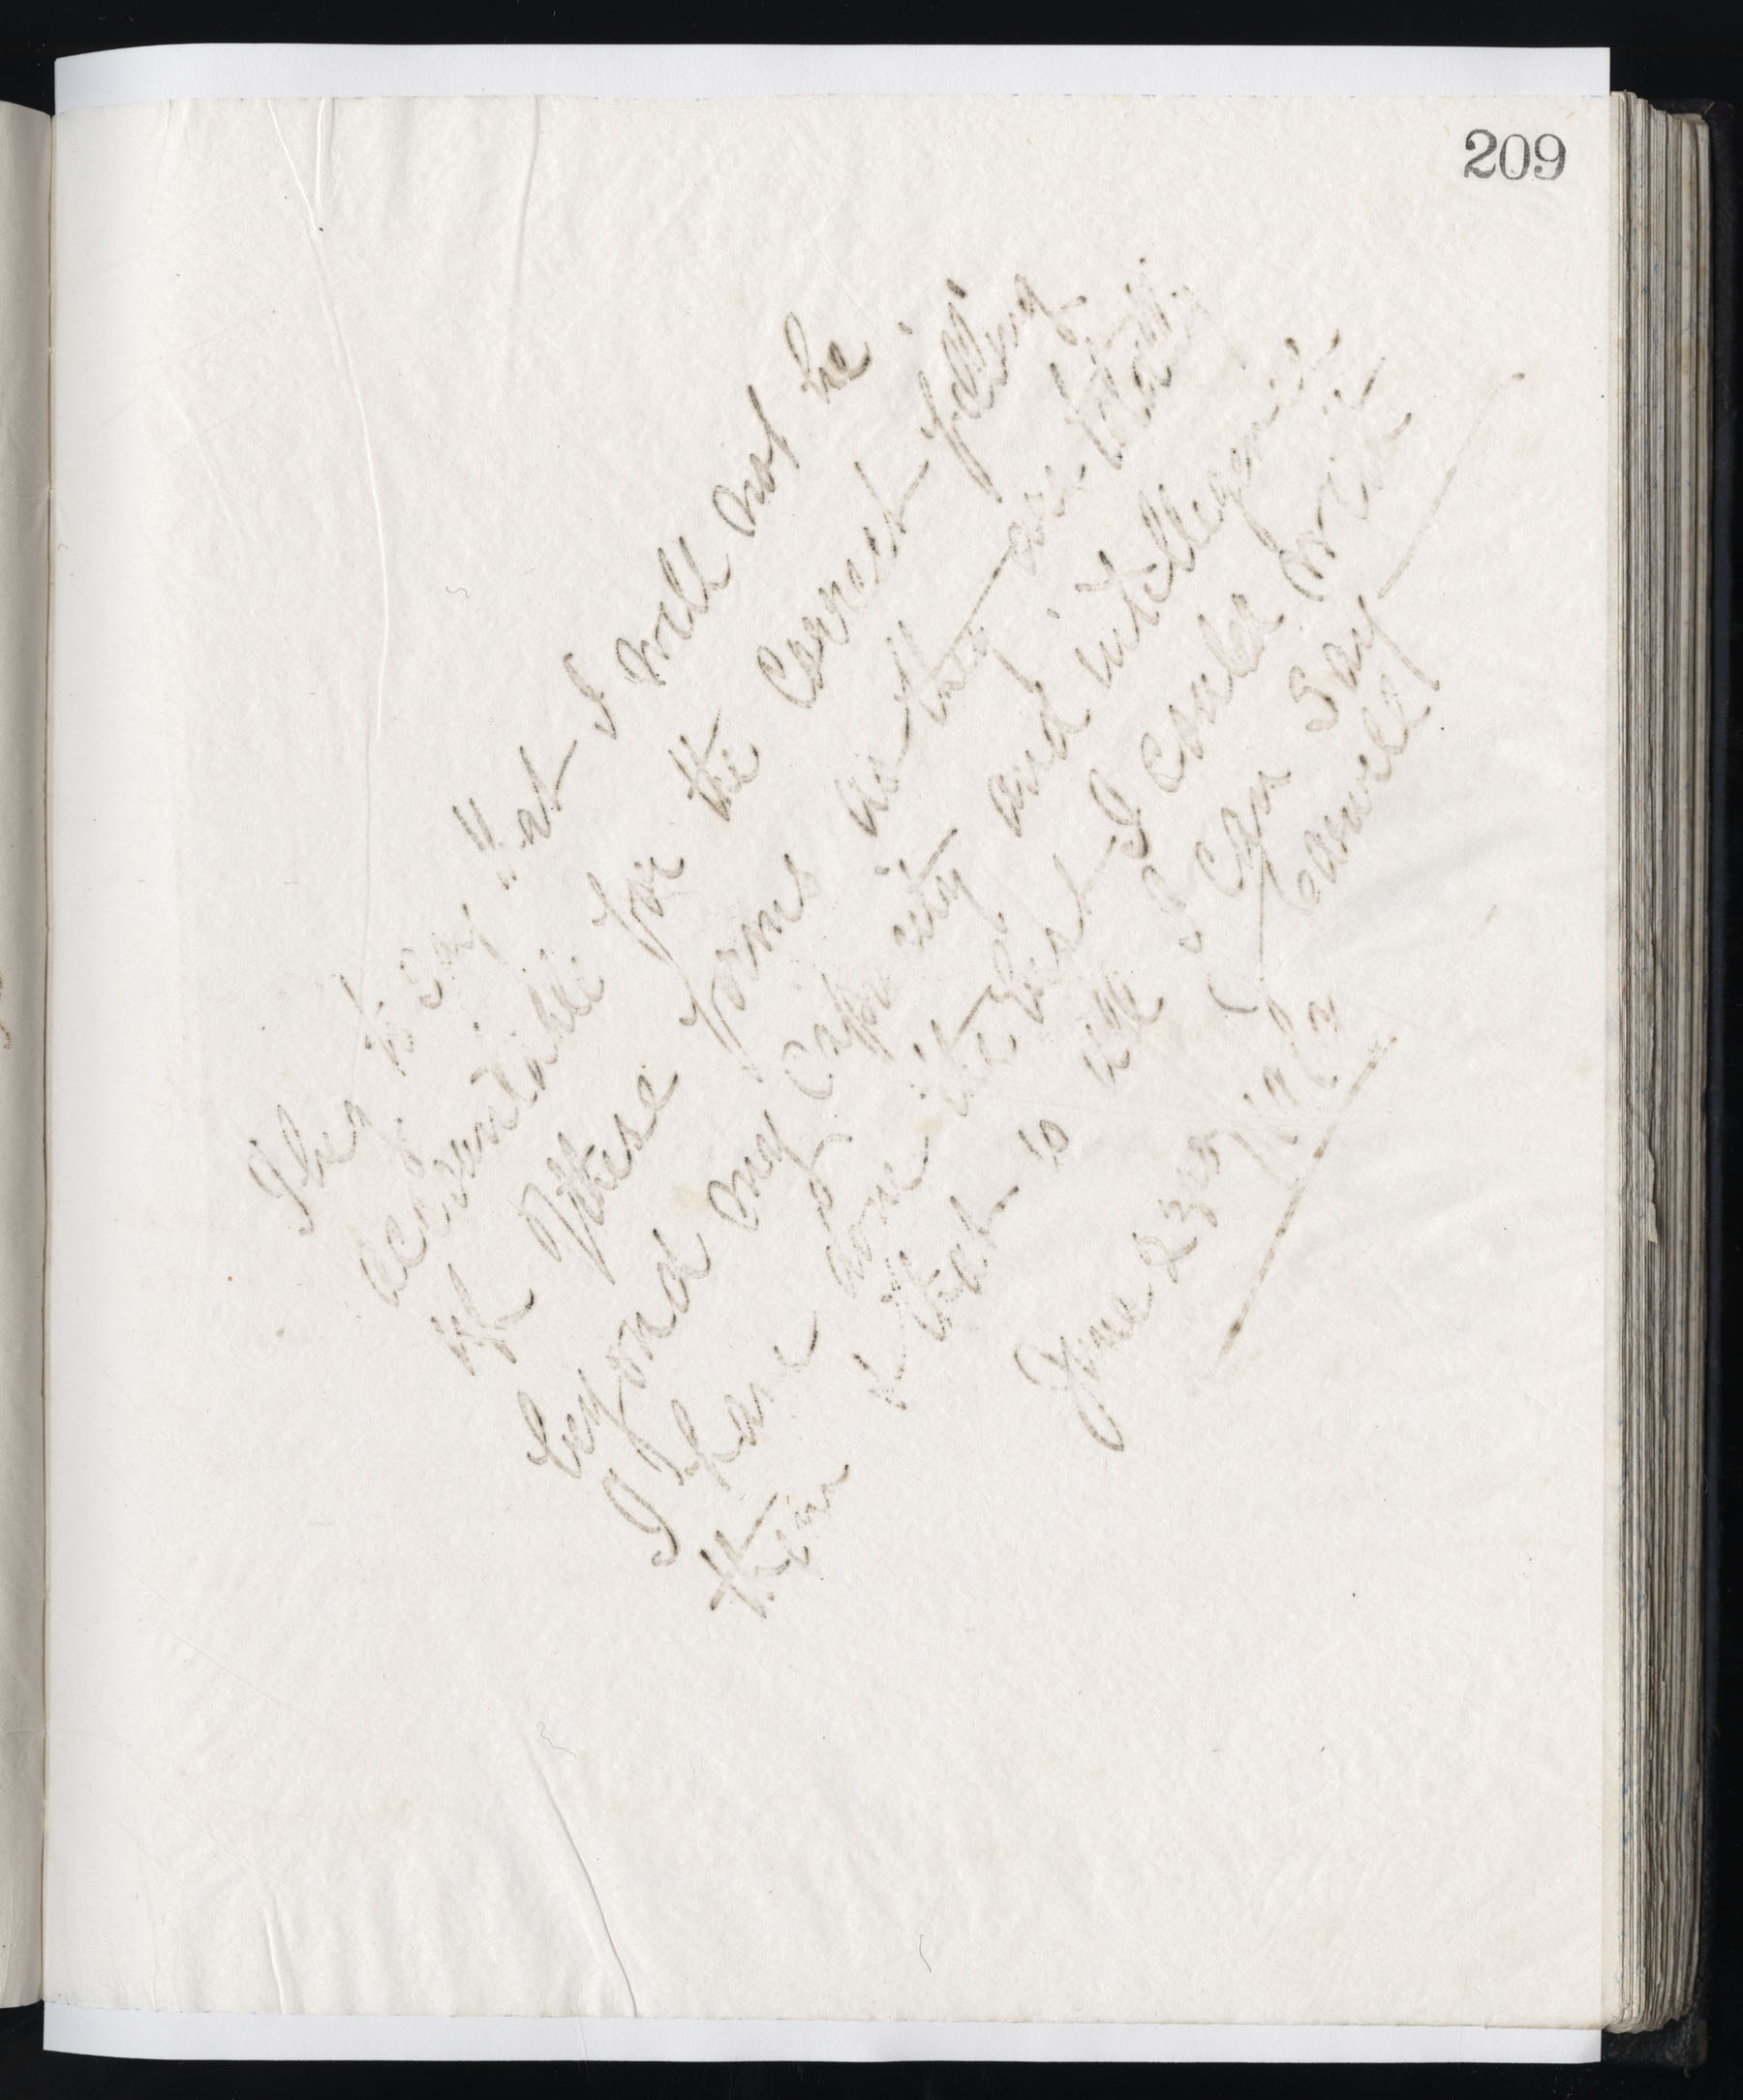 209
I beg to say that I will not be
accountable for the Correct filling
of these forms as they are totally
beyond my capacity and intelligence
I have done the best I could with
them & that is all I can say
June 23rd